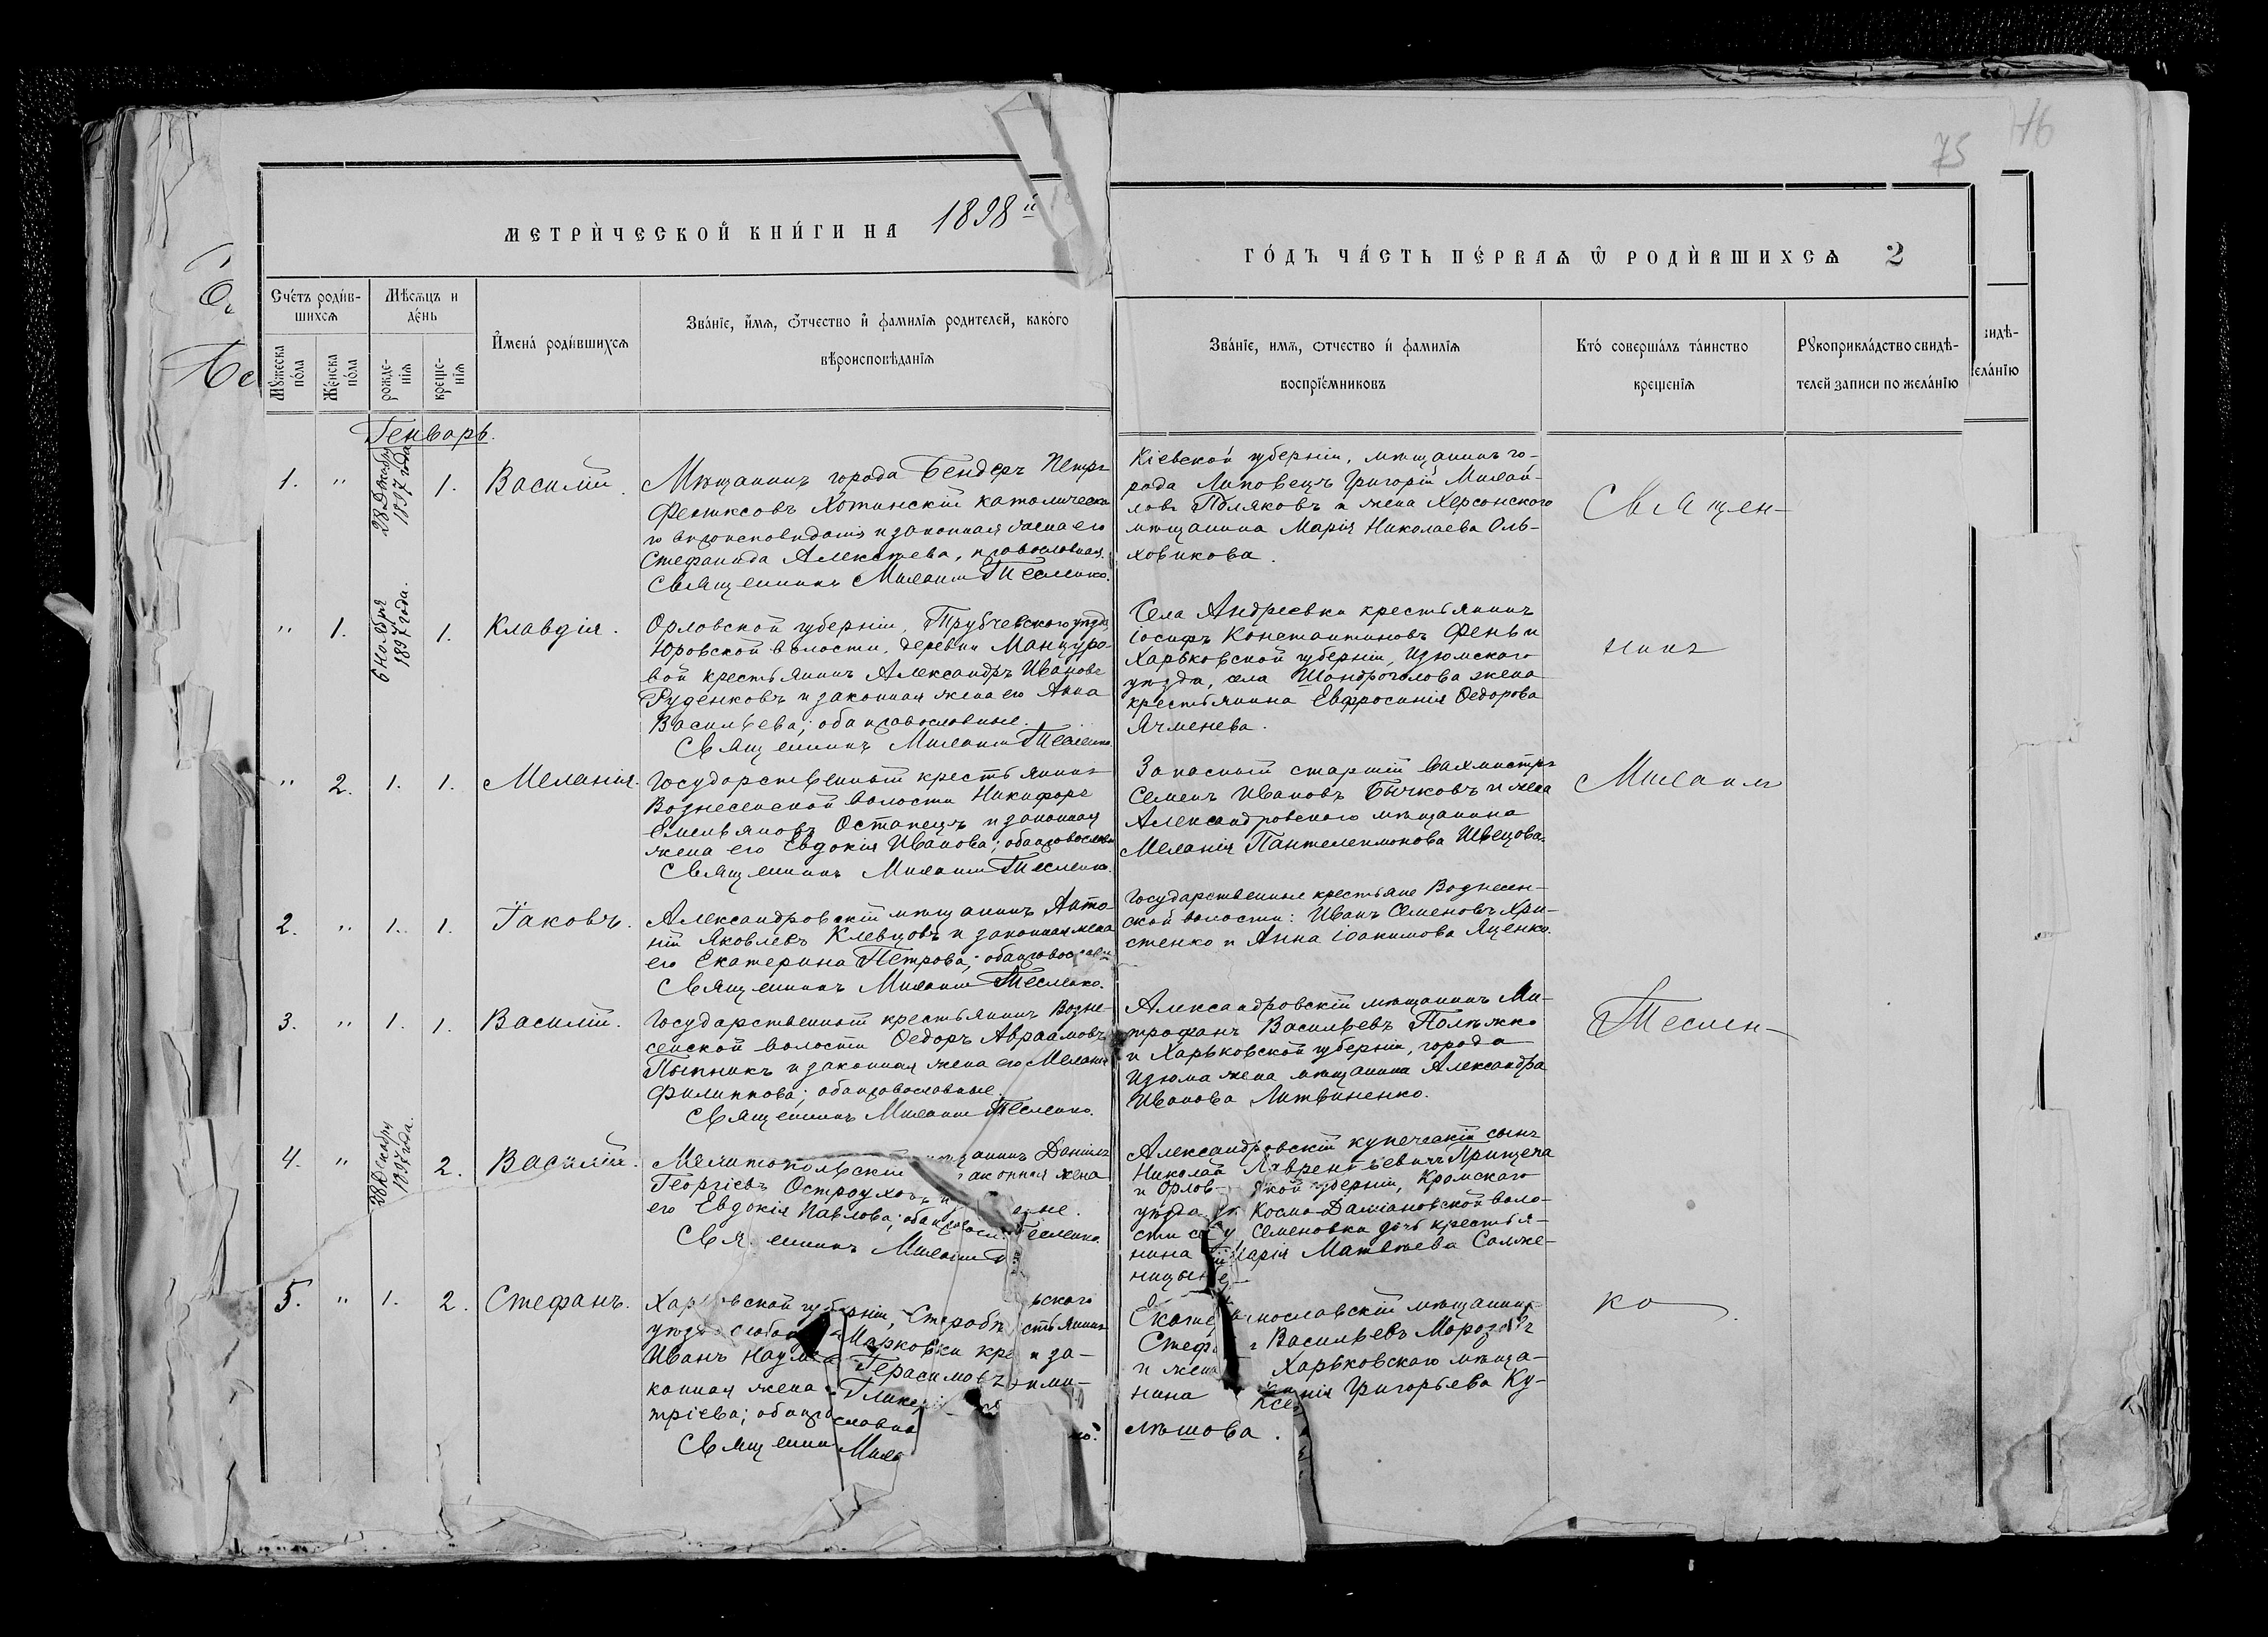 75
МЕТРИЧЕСКОЙ КНИГИ НА 1898й
ГОДЪ ЧАСТЬ ПЕРВАЯ Ѡ РОДИВШИХСЯ 2
Счетъ родив-
шихся
Мѣсяцъ и
день
Мужеска
пола
Женска
пола
рожде-
нія
креще-
нія
Имена родившихся
Званіе, имя, отчество и фамилія родителей, какого
вѣроисповѣданія
Званіе, имя, отчество и фамилія
воспріемниковъ
Кто совершалъ таинство
крещенія
Рукоприкладство свидѣ-
телей записи по желанію
Генварь.
1. " 28 Декабря 1897 года 1. Василій.
Мѣщанинъ города Бендеръ Петръ
Феликсовъ Хотинскій католическа-
го вѣроисповѣданія и законная жена его
Стефанида Алексѣева, православная.
Священникъ Михаилъ Тесленко.
Кіевской губерніи, мѣщанинъ го-
рода Липовецъ Григорій Михай-
ловъ Поляковъ и жена Херсонского
мѣщанина Марія Николаева Оль-
ховикова.
Священ-
" 1. 6 Ноября 1897 года. 1. Клавдія.
Орловской губерніи, Трубчевского уѣзда,
Юровской волости, деревни Манцуро-
вой крестьянинъ Александръ Ивановъ
Руденковъ и законная жена его Анна
Васильева; оба православные.
Священникъ Михаилъ Тесленко.
Села Андреевки крестьянинъ
Іосифъ Константиновъ Фень и
Харьковской губерніи, Изюмского
уѣзда, села Шандроголова жена
крестьянина Евфросинія Ѳедорова
Ячменева.
никъ
" 2. 1. 1. Меланія.
Государственный крестьянинъ
Вознесенской волости Никифоръ
Емельяновъ Остапецъ и законная
жена его Евдокія Иванова; оба православн.
Священникъ Михаилъ Тесленко.
Запасный старшій вахмистръ
Семенъ Ивановъ Бычковъ и жена
Александровского мѣщанина
Меланія Пантелеимонова Швецова.
Михаилъ
2. " 1. 1. Іаковъ.
Александровскій мѣщанинъ Анто-
ній Яковлевъ Клевцовъ и законная жена
его Екатерина Петрова; оба православн.
Священникъ Михаилъ Тесленко.
Государственные крестьяне Вознесен-
ской волости: Иванъ Семеновъ Хри-
стенко и Анна Іоакимова Яценко.
3. " 1. 1. Василій.
Государственный крестьянинъ Возне-
сенской волости Ѳедоръ Авраамовъ
Пытникъ и законная жена его Меланія
Филиппова; оба православные.
Священникъ Михаилъ Тесленко.
Александровскій мѣщанинъ Ми-
трофанъ Васильевъ Полѣжко
и Харьковской губерніи, города
Изюма жена мѣщанина Александра
Иванова Литвиненко.
Теслен-
4. " 28 Декабря 1897 года. 2. Василій.
Мелитопольскій мѣщанинъ Даніилъ
Георгіевъ Остроуховъ и законная жена
его Евдокія Павлова; оба православные.
Священникъ Михаилъ Тесленко.
Александровскій купеческій сынъ
Николай Лаврентьевичъ Прищепа
и Орловской губерніи, Кромского
уѣзда Космо-Даміановской воло-
сти Семеновки дочь крестья-
нина Марія Матвѣева Салже-
ницына
5. " 1. 2. Стефанъ.
Харьковской губерніи, Староб ьского
уѣзда слободы Марковки крестьянинъ
Иванъ Наум Герасимовъ и за-
конная жена Гликерія Дими-
тріева; оба православные
Священни Миха
Екатеринославскій мѣщанинъ
Стефанъ Васильевъ Морозовъ
и жена Харьковского мѣща-
нина Ксенія Григорьева Ку-
лѣшова.
ко